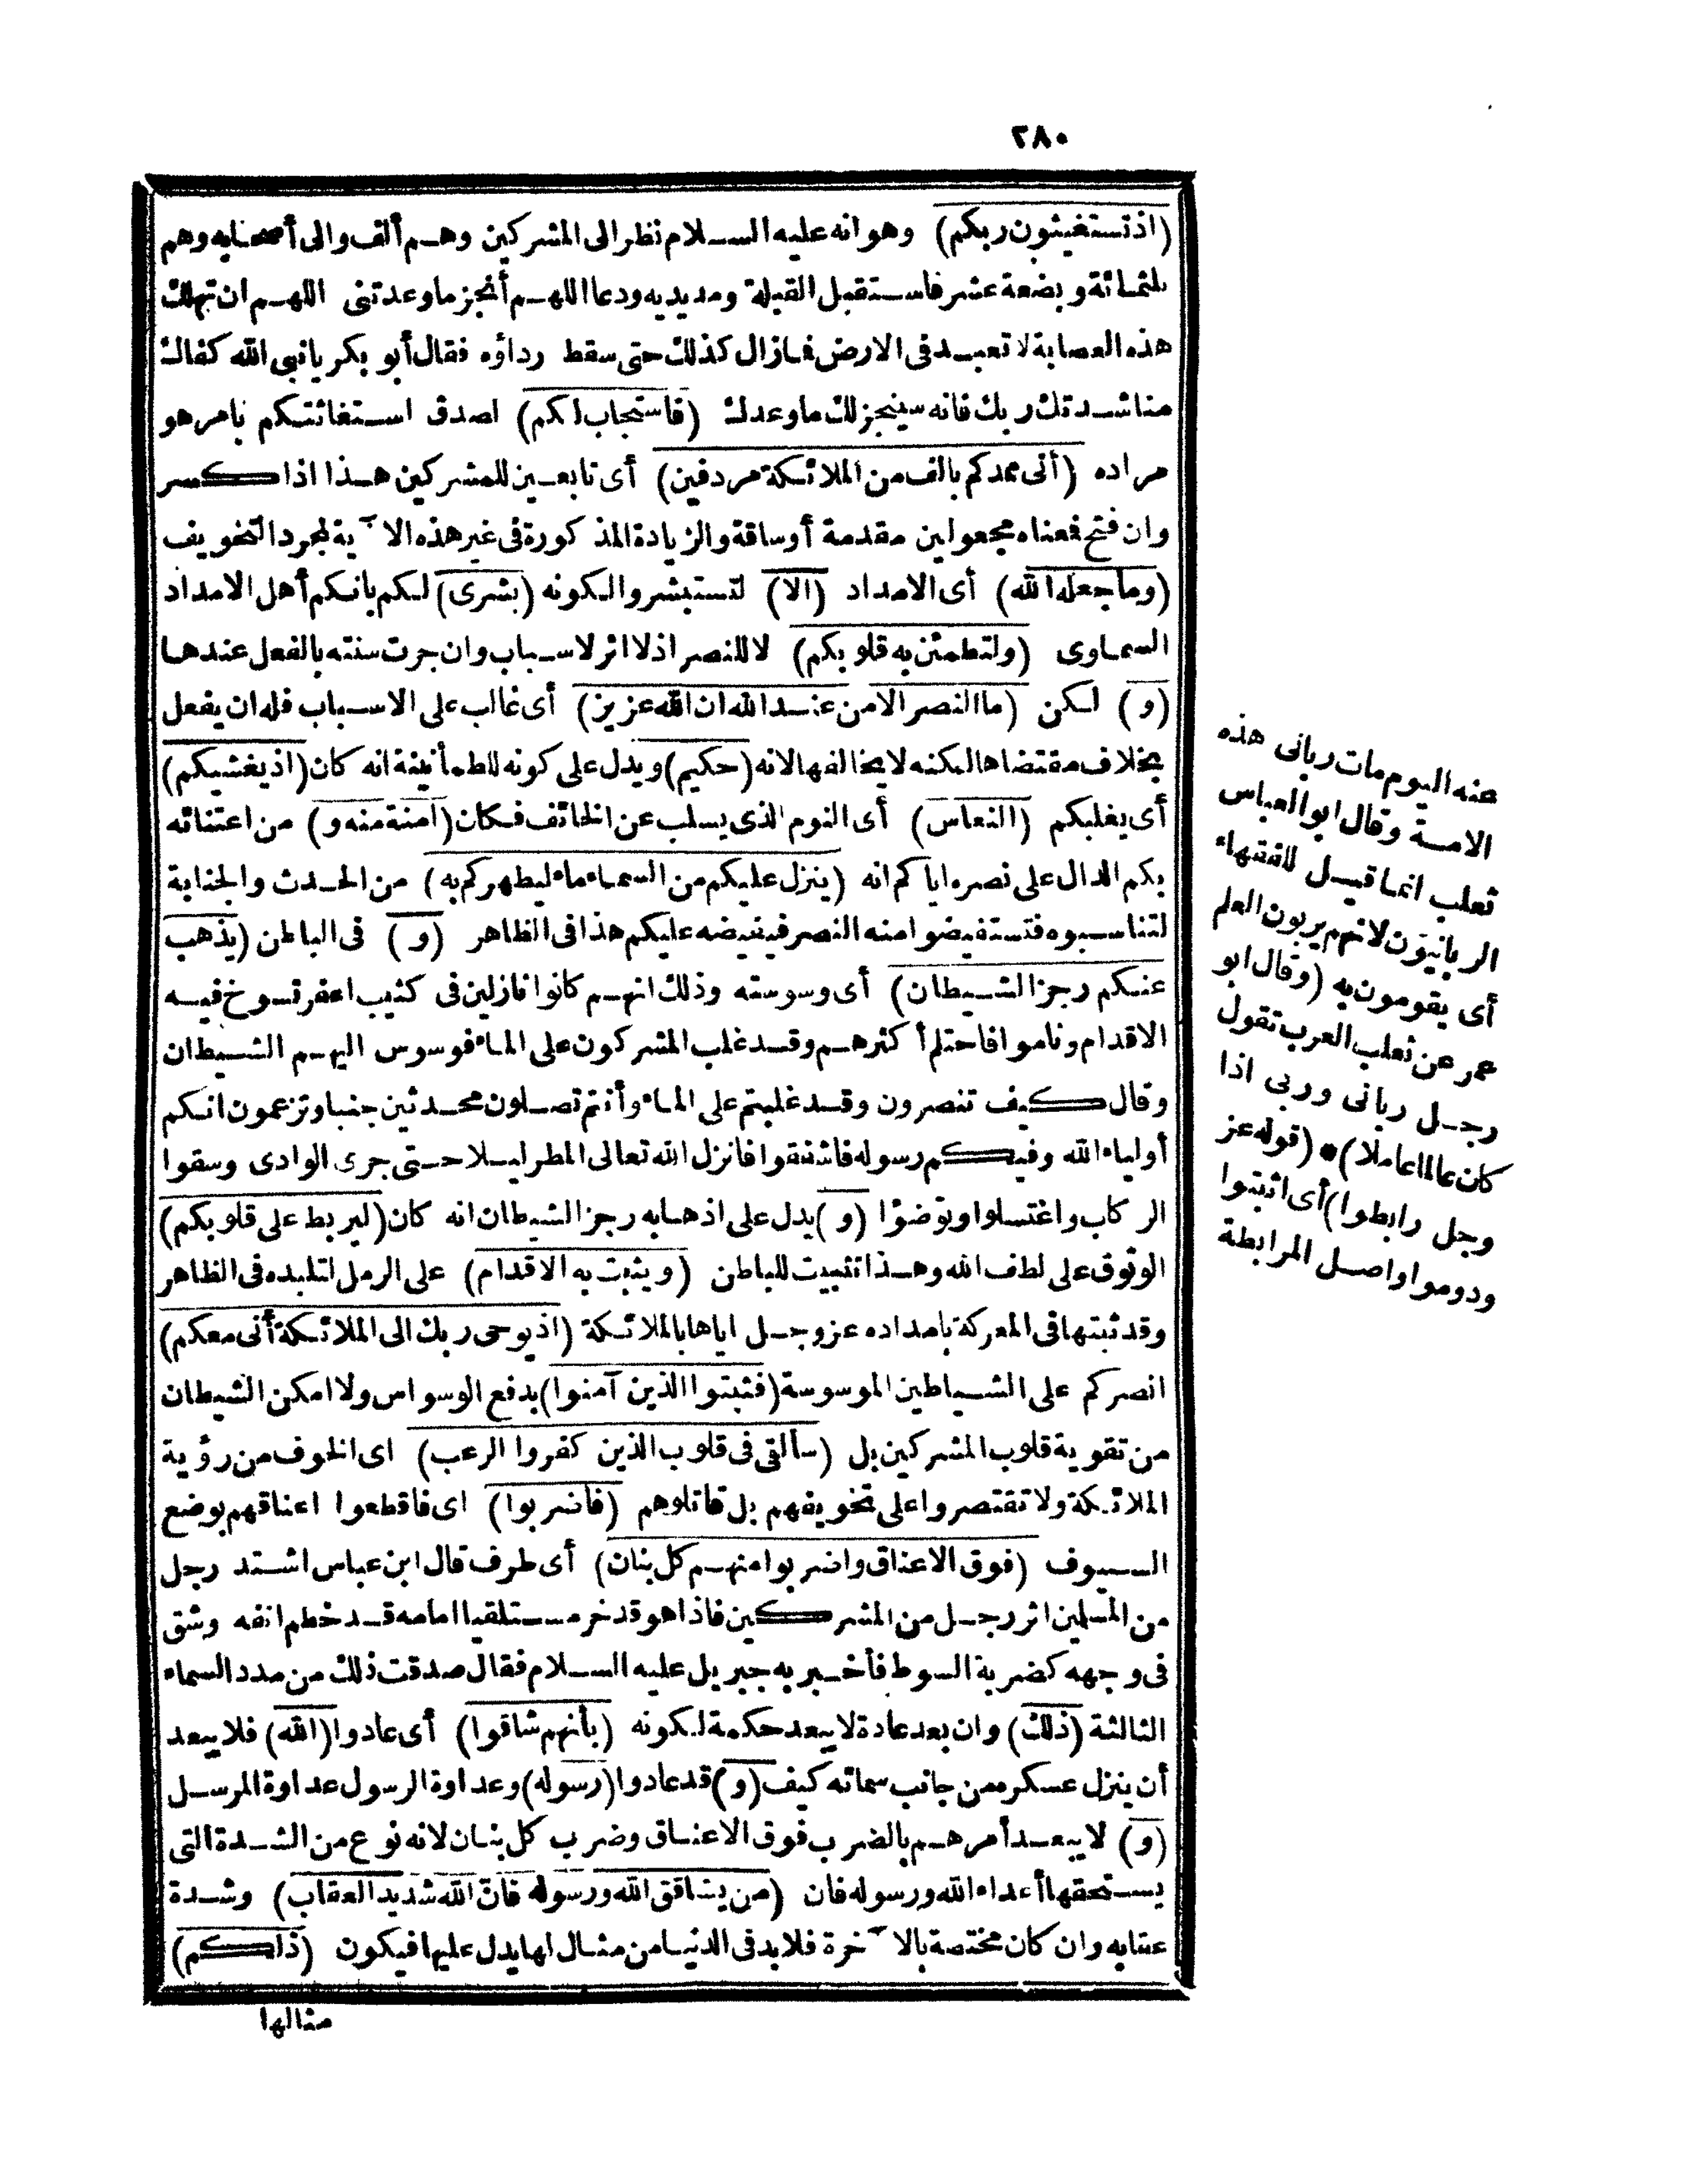 ٢٨٠
(اذ تستغيثون ربكم) وهو انه عليه السلام نظر الى المشركين وهم ألف والى أصحابه وهم
ثلثمائة وبضعة عشر فاستقبل القبلة ومد يديه ودعا اللهم أنجز ما وعدتنى اللهم ان تهلك
هذه العصابة لا تعبد فى الارض فمازال كذلك حتى سقط رداؤه فقال أبو بكر يا نبى الله كفاك
مناشدتك ربك فانه سينجز لك ما وعدك (فاستجاب لكم) لصدق استغاثتكم بامر هو
مراده (أنى ممدكم بالف من الملائكة مردفين) أى تابعين للمشركين هذا اذا كسر
وان فتح فمعناه مجعولين مقدمة أو ساقة والزيادة المذكورة فى غير هذه الآية لمجرد التخويف
(وما جعله الله) أى الامداد (الا) لتستبشروا لكونه (بشرى) لكم بانكم أهل الامداد
السماوى (ولتطمئن به قلوبكم) لا للنصر اذ لا اثر لاسباب وان جرت سنته بالفعل عندها
(و) لكن (ما النصر الا من عند الله ان الله عزيز) أى غالب على الاسباب فله ان يفعل
بخلاف مقتضاها لكنه لا يخالفها لانه (حكيم) ويدل على كونه للطمأنينة انه كان (اذ يغشيكم)
أى يغلبكم (النعاس) أى النوم الذى يسلب عن الخائف فكان (أمنة منه و) من اعتنائه
بكم الدال على نصره اياكم انه (ينزل عليكم من السماء ماء ليطهركم به) من الحدث والجنابة
لتناسبوه فتستفيضوا منه النصر فيفيضه عليكم هذا فى الظاهر (و) فى الباطن (يذهب
عنكم رجز الشيطان) أى وسوسته وذلك انهم كانوا نازلين فى كثيب اعفر تسوخ فيه
الاقدام وناموا فاحتلم أكثرهم وقد غلب المشركون على الماء فوسوس اليهم الشيطان
وقال كيف تنصرون وقد غلبتم على الماء وأنتم تصلون محدثين جنبا وتزعمون انكم
أولياء الله وفيكم رسوله فاشفقوا فانزل الله تعالى المطر ليلا حتى جرى الوادى وسقوا
الركاب واغتسلوا وتوضؤا (و) يدل على اذهابه رجز الشيطان انه كان (ليربط على قلوبكم)
الوثوق على لطف الله وهذا تثبيت للباطن (ويثبت به الاقدام) على الرمل لتلبده فى الظاهر
وقد ثبتها فى المعركة بامداده عز وجل اياها بالملائكة (اذ يوحى ربك الى الملائكة أنى معكم)
انصركم على الشياطين الموسوسة (فثبتوا الذين آمنوا) بدفع الوسواس ولا امكن الشيطان
من تقوية قلوب المشركين بل (سألقى فى قلوب الذين كفروا الرعب) اى الخوف من رؤية
الملائكة ولا تقتصروا على تخويفهم بل قاتلوهم (فاضربوا) اى فاقطعوا اعناقهم بوضع
السيوف (فوق الاعناق واضربوا منهم كل بنان) أى طرف قال ابن عباس اشتد رجل
من المسلمين اثر رجل من المشركين فاذا هو قد خر مستلقيا امامه قد خطم انفه وشق
فى وجهه كضربة السوط فأخبر به جبريل عليه السلام فقال صدقت ذلك من مدد السماء
الثالثة (ذلك) وان بعد عادة لا يبعد حكمة لكونه (بأنهم شاقوا) أى عادوا (الله) فلا يبعد
أن ينزل عسكره من جانب سمائه كيف (و) قد عادوا (رسوله) وعداوة الرسول عداوة المرسل
(و) لا يبعد أمرهم بالضرب فوق الاعناق وضرب كل بنان لانه نوع من الشدة التى
يستحقها أعداء الله ورسوله فان (من يشاقق الله ورسوله فان الله شديد العقاب) وشدة
عقابه وان كان مختصة بالآخرة فلا بد فى الدنيا من مثال لها يدل عليها فيكون (ذلكم)
مثالها
عنه اليوم مات ربانى هذه
الامة وقال ابو العباس
ثعلب انما قيل للفقهاء
الربانيون لانهم يربون العلم
أى يقومون به (وقال ابو
عمر عن ثعلب العرب تقول
رجل ربانى وربى اذا
كان عالما عاملا) * (قوله عز
وجل رابطوا) أى اثبتوا
ودوموا واصل المرابطة